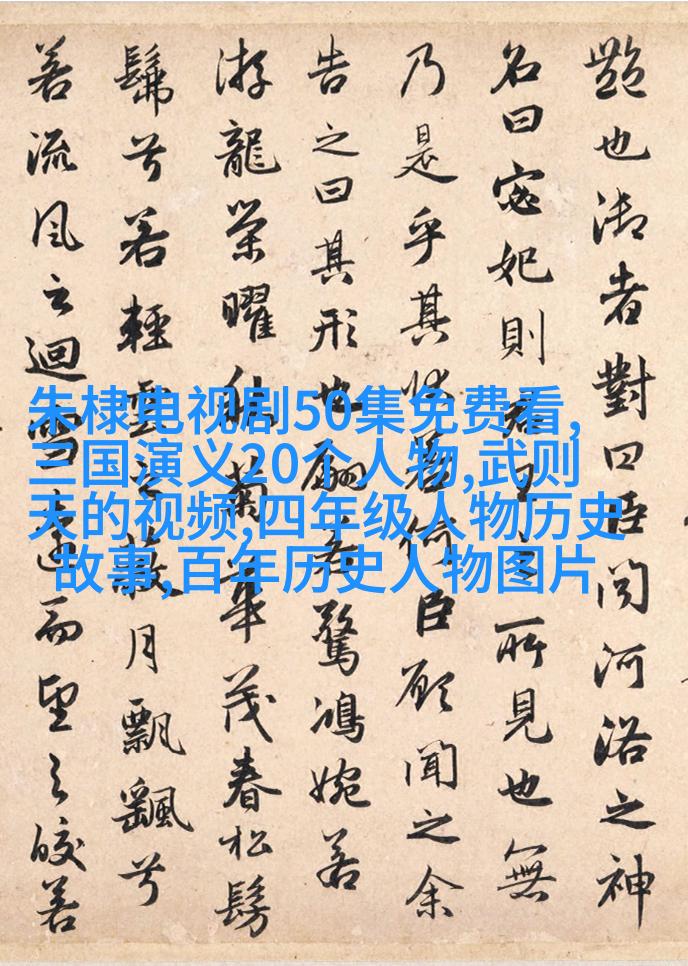 艷也御者對曰臣聞河洛之神
名曰宓妃則君王之所見也無
乃是乎其狀若何臣願聞之余
告之曰其形也翩若驚鴻婉若
游龍榮曜秋菊華茂春松髣
髴兮若輕雲之蔽月飄颻兮
若流風之迴雪遠而望之皎若
朱棣电视剧50集免费看,
三国演义20个人物,武则
天的视频,四年级人物历史
故事,百年历史人物图片